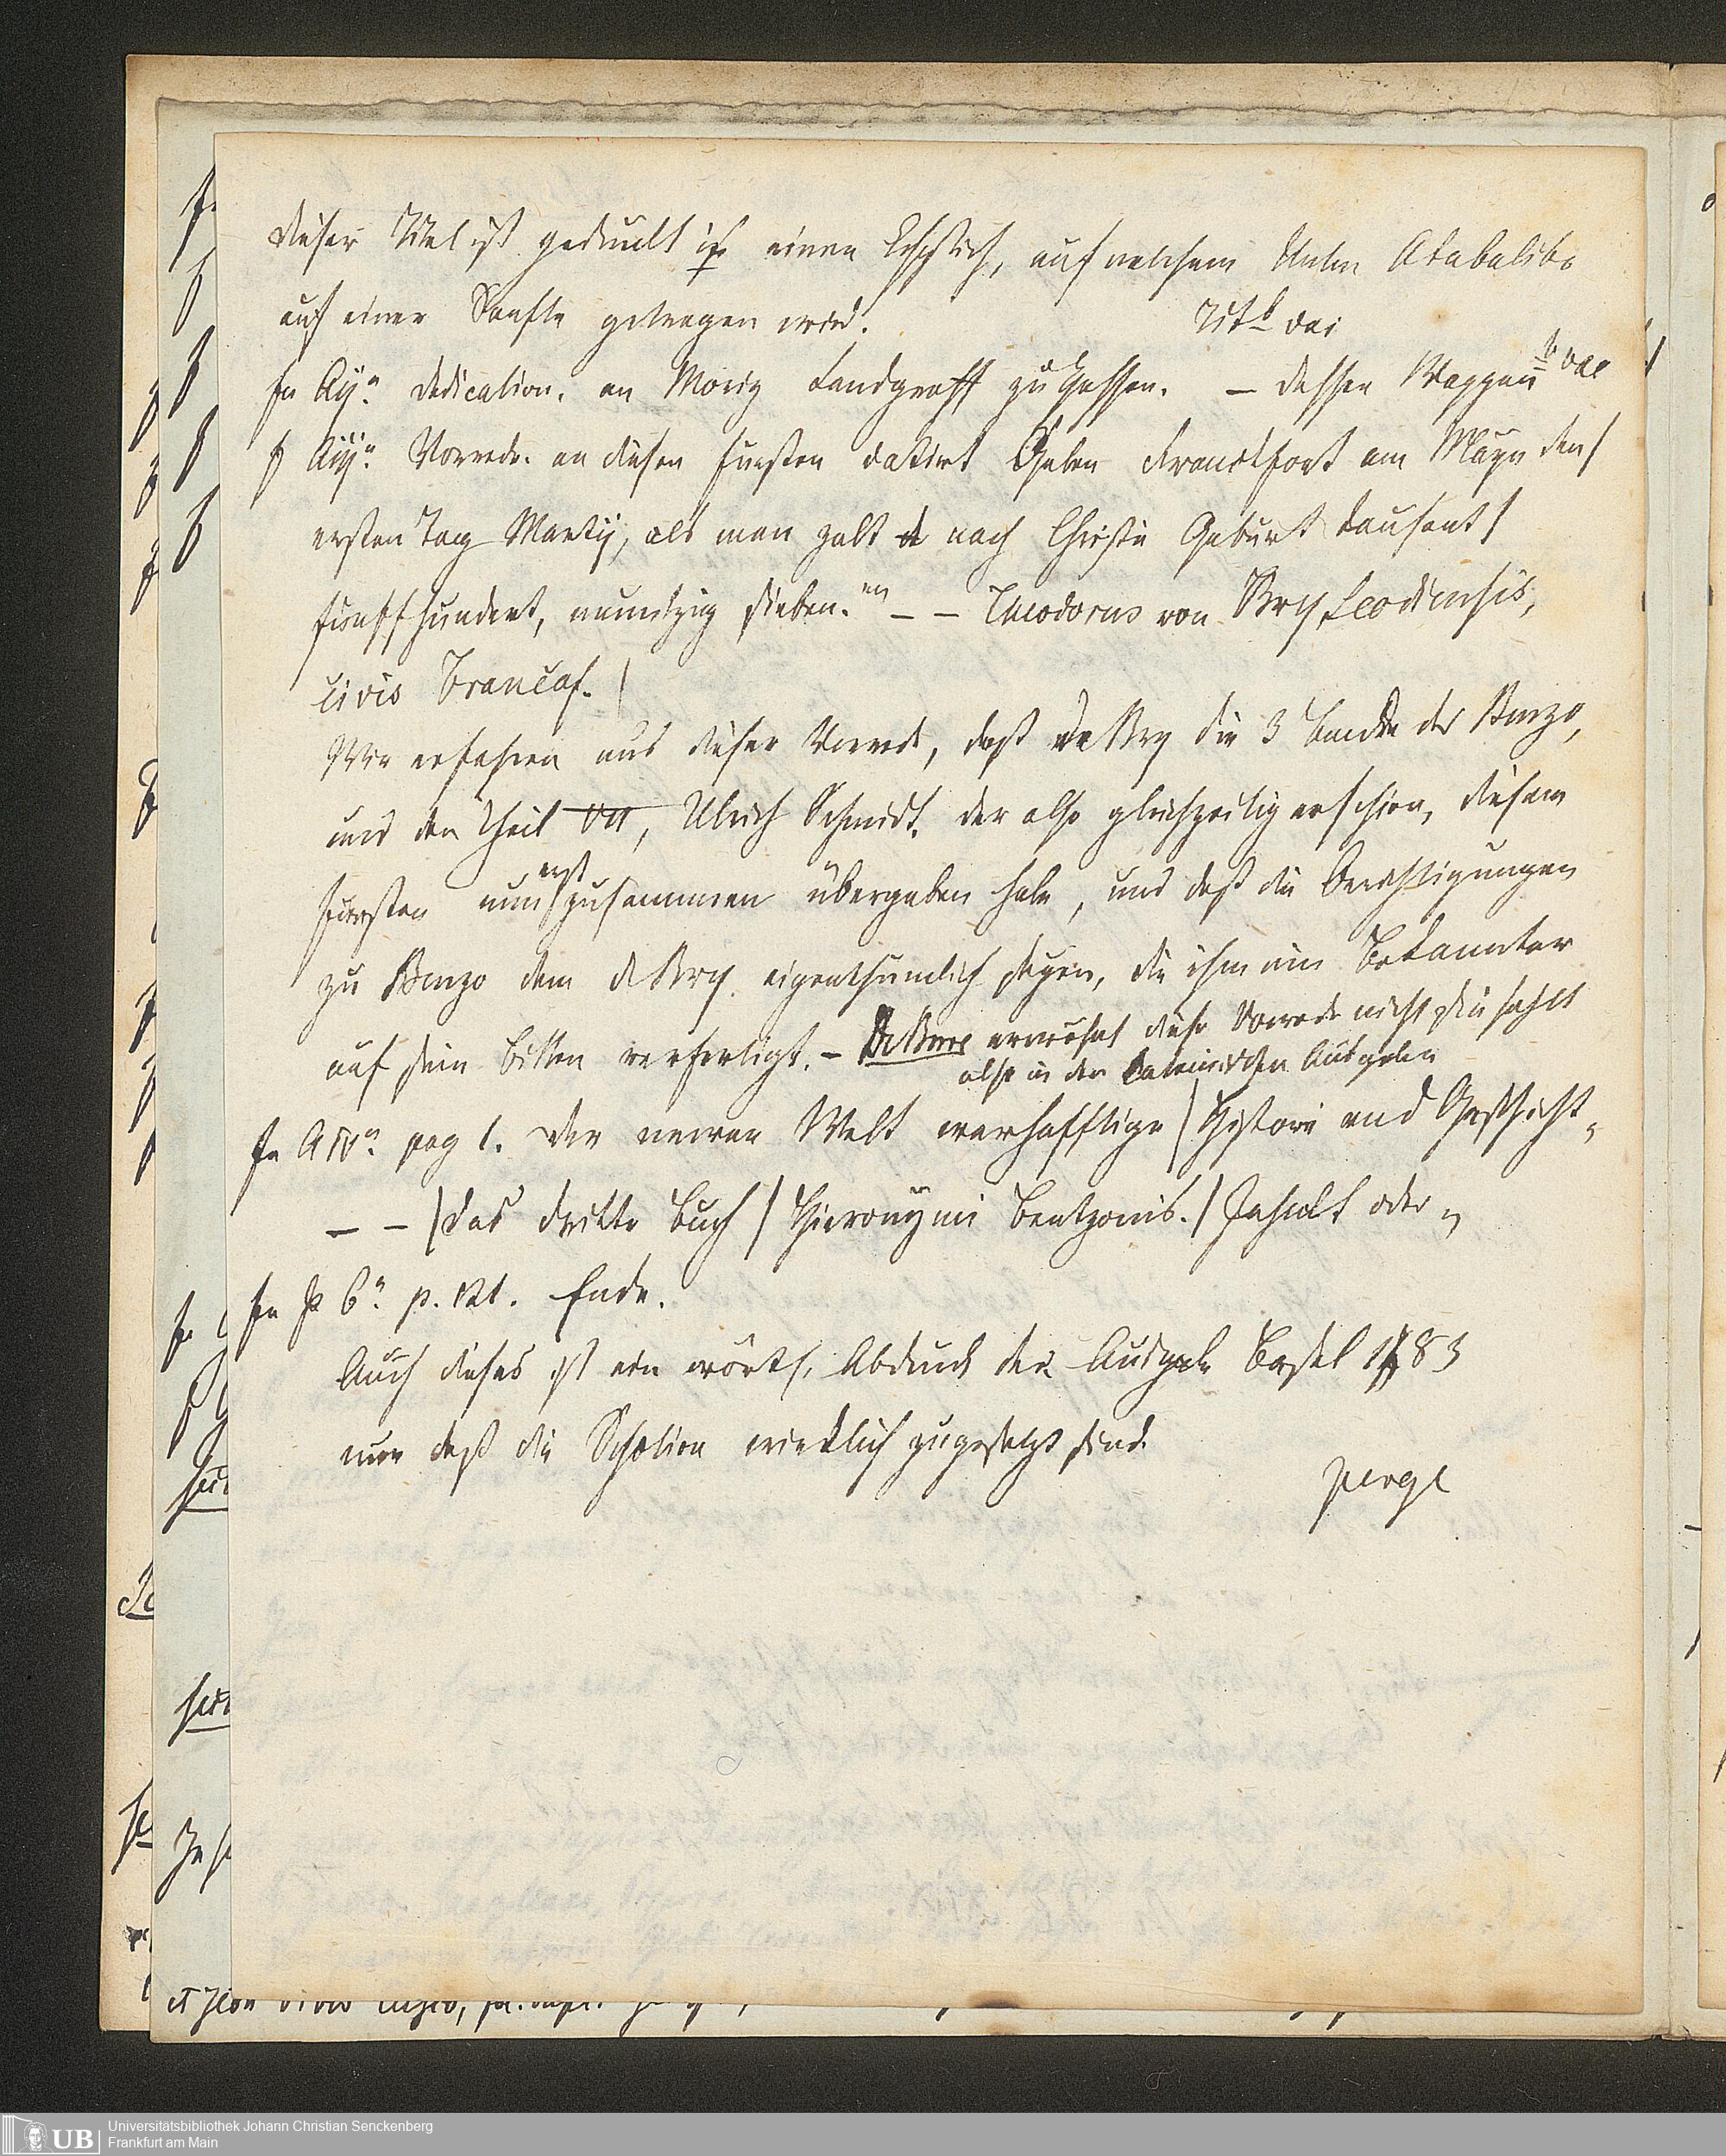 Dieser Titel ist gedruckt in einen Kupferstich, auf welchem unten Atabaliba
auf einer Sänfte getragen wird.
Titb vac
fn Aij.a Dedication. an Moriz Landgraff zu Hessen. – dessen Wappen b vac
f Aiij.a Vorrede. an diesen Fürsten datirt Geben Franckfort am Mayn den/
ersten Tag Martij, als man zalt nach Christi Geburt tausent/
fünffhundert, neuntzig sieben. en – – Theodorus von Bry Leodiensis,
civis Francof. /
Wir erfahren aus dieser Vorrede, dass de Bry die 3 Bücher des Benzo,
und den Theil VII, Ulrich Schmidt, der also gleichzeitig erschien, diesem
Fürsten nun erst zusammen übergeben habe, und dass die Berichtigungen
zu Benzo dem de Bry eigenthümlich seyen, die ihm ein Bekannter
auf sein Bitten verfertigt. – De Bure erwähnt diese Vorrede nicht sie fehlt
also in der Lateinischen Ausgabe
fn A iv.a pag 1. Der newen Welt warhafftige / Histori und Geschicht,
– – / das dritte Buch / Hieronymi Bentzonis. / Inhalt oder
fn P 6.a p. 121. Ende.
Auch dieses ist ein wörtl. Abdruck der Ausgabe Basel 1583
nur dass die Scholien wirklich zugesetzt sind.
perge
UB
Universitätsbibliothek Johann Christian Senckenberg
Frankfurt am Main